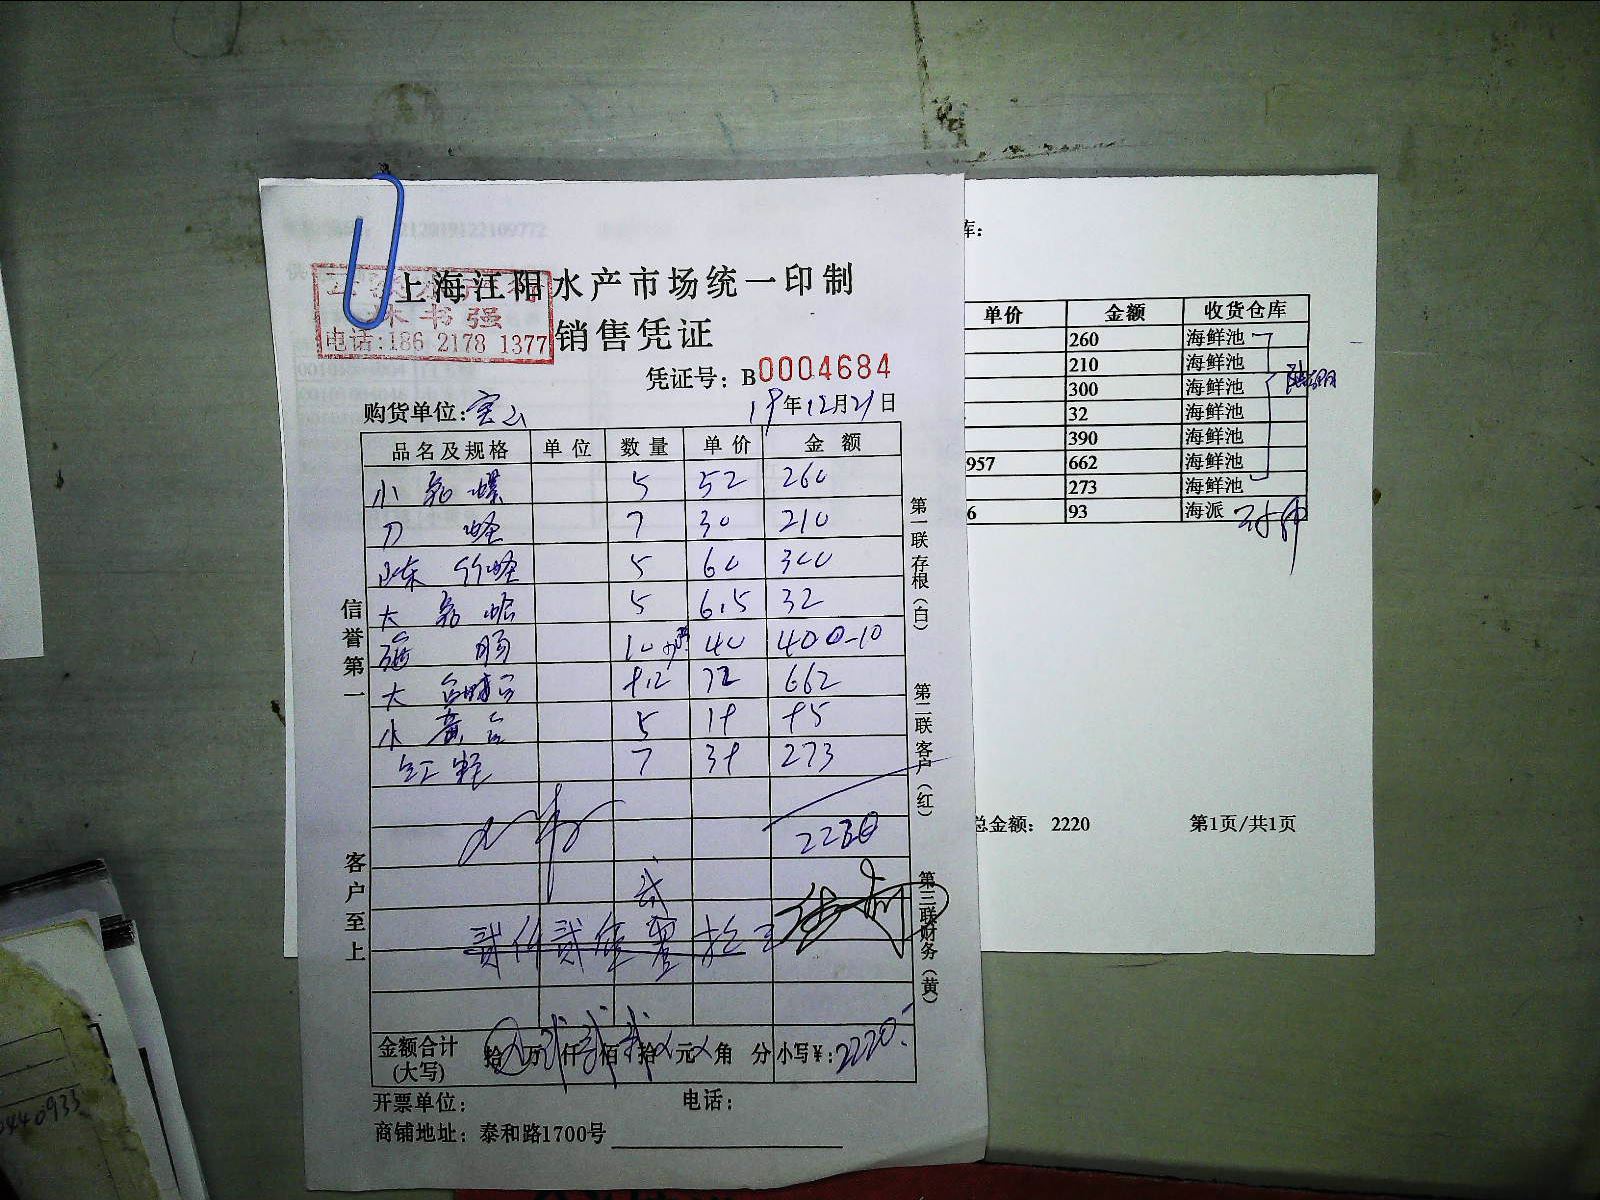 上海江阳水产市场统一印制
书强
电话:186 2178 1377
销售凭证
凭证号: B0004684
购货单位: 宝山
19年12月21日
品名及规格 单位 数量 单价 金额
小 螺 5 52 260
刀 蛏 7 30 210
山东 竹蛏 5 60 300
大 蛤 5 6.5 32
海 肠 10 40 400-10
大 9.2 72 662
小 黄 5 19 95
红 7 39 273
2220
贰仟贰
金额合计(大写) 拾 万 仟 佰 拾 元 角 分 小写¥: 2220.-
开票单位: 电话:
商铺地址: 泰和路1700号
信誉第一
客户至上
第一联存根(白)
第二联客户(红)
第三联财务(黄)
库:
单价 金额 收货仓库
260 海鲜池
210 海鲜池
300 海鲜池
32 海鲜池
390 海鲜池
957 662 海鲜池
273 海鲜池
6 93 海派
总金额: 2220 第1页/共1页
440933